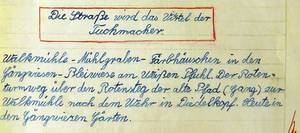 Die Straße wird das Viertel der
Tuchmacher.
Walkmühle - Mühlgraben - Färbhäuschen in den
Gängwiesen - Bleiwers am Weißen Pfuhl. Der Roten-
turmweg über den Rotensteg der alte Pfad (Gang) zur
Walkmühle nach dem Wehr in Diedelkopf. Heute in
den Gängwiesen Gärten.